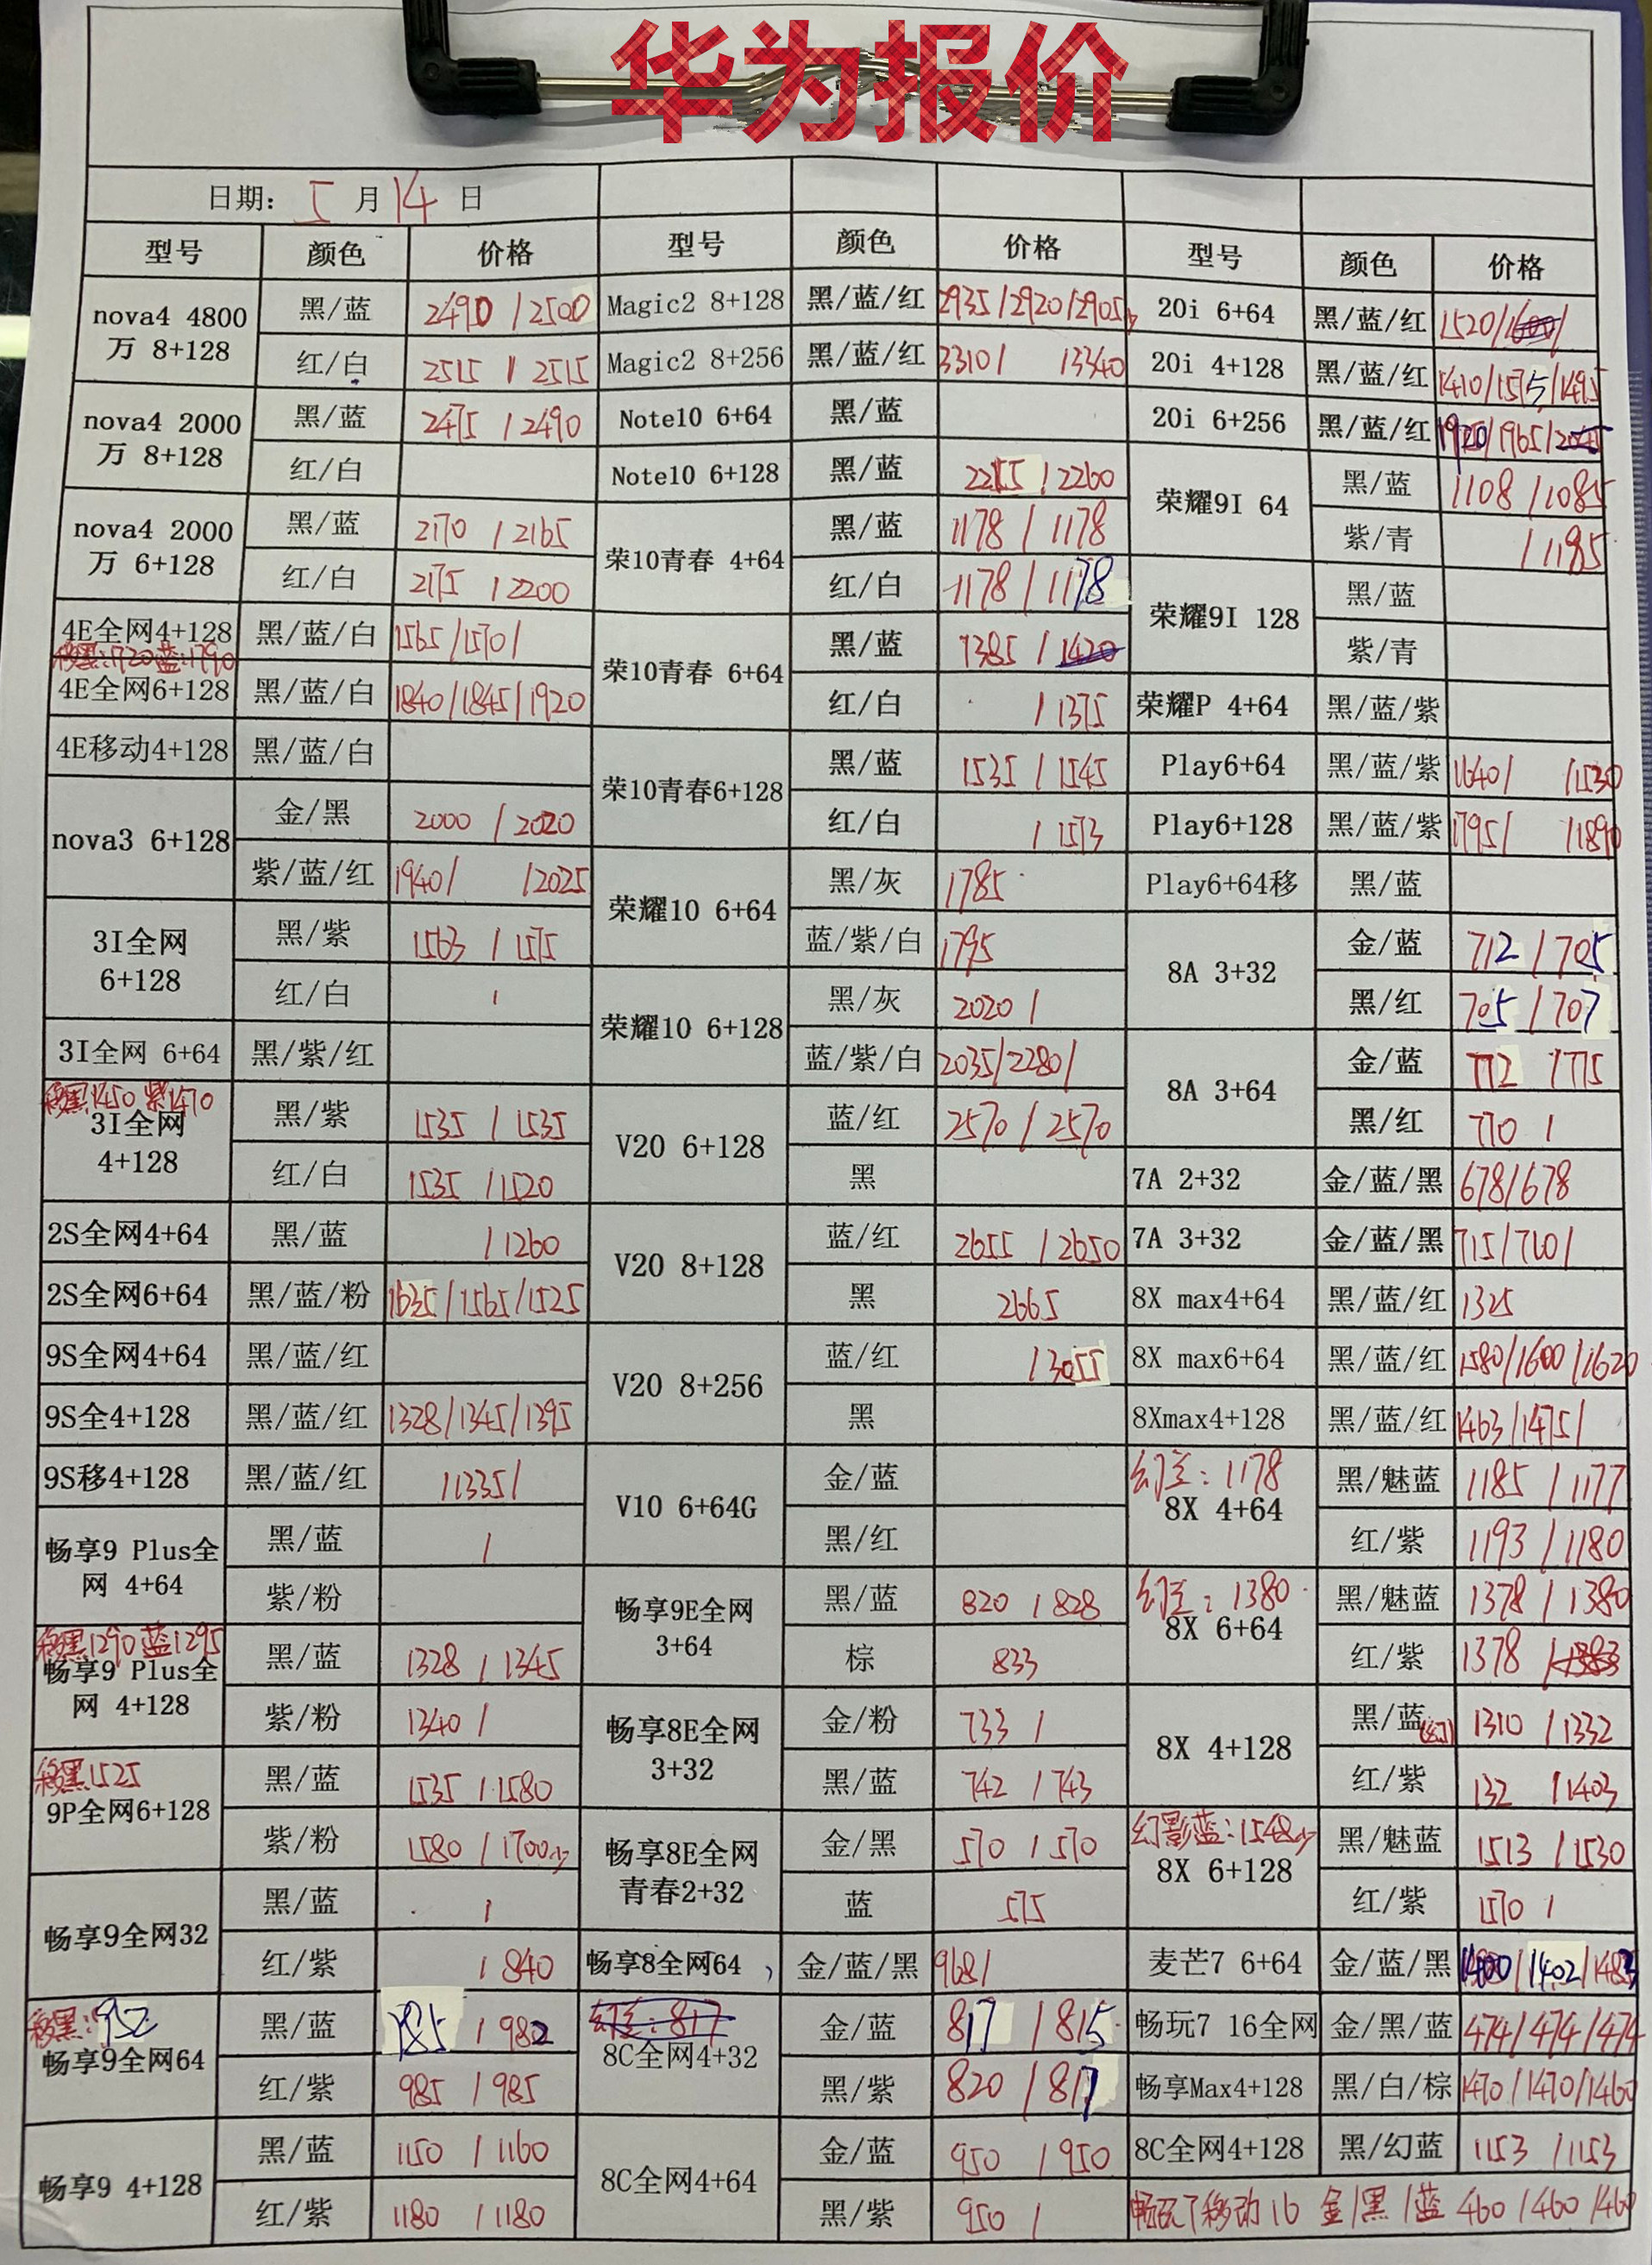 华为报价
日期: 5 月 14 日
型号 颜色 价格 型号 颜色 价格 型号 颜色 价格
nova4 4800万 8+128 黑/蓝 2490 / 2500
红/白 2515 / 2515
nova4 2000万 8+128 黑/蓝 2475 / 2490
红/白
nova4 2000万 6+128 黑/蓝 2170 / 2165
红/白 2175 / 2200
4E全网4+128 黑/蓝/白 1565/1570/
移黑:1720蓝:1790
4E全网6+128 黑/蓝/白 1840/1845/1920
4E移动4+128 黑/蓝/白
nova3 6+128 金/黑 2000 / 2020
紫/蓝/红 1940/ /2025
3I全网 6+128 黑/紫 1563 / 1575
红/白 /
3I全网 6+64 黑/紫/红
移黑1450 紫1470
3I全网 4+128 黑/紫 1535 / 1535
红/白 1535 / 1520
2S全网4+64 黑/蓝 / 1260
2S全网6+64 黑/蓝/粉 1635/1565/1525
9S全网4+64 黑/蓝/红
9S全4+128 黑/蓝/红 1328/1345/1395
9S移4+128 黑/蓝/红 /1335/
畅享9 Plus全网 4+64 黑/蓝 /
紫/粉
移黑1290 蓝1295
畅享9 Plus全网 4+128 黑/蓝 1328 / 1345
紫/粉 1340 /
移黑1525
9P全网6+128 黑/蓝 1535 / 1580
紫/粉 1580 / 1700少
畅享9全网32 黑/蓝 /
红/紫 / 840
移黑:952
畅享9全网64 黑/蓝 985 / 982
红/紫 985 / 985
畅享9 4+128 黑/蓝 1150 / 1160
红/紫 1180 / 1180
Magic2 8+128 黑/蓝/红 2935/2920/2905少
Magic2 8+256 黑/蓝/红 3310/ /3340
Note10 6+64 黑/蓝
Note10 6+128 黑/蓝 2255 / 2260
荣10青春 4+64 黑/蓝 1178 / 1178
红/白 1178 / 1178
荣10青春 6+64 黑/蓝 1385 / 1420
红/白 / 1375
荣10青春6+128 黑/蓝 1535 / 1545
红/白 / 1573
荣耀10 6+64 黑/灰 1785
蓝/紫/白 1795
荣耀10 6+128 黑/灰 2020 /
蓝/紫/白 2035/2280/
V20 6+128 蓝/红 2570 / 2570
黑
V20 8+128 蓝/红 2655 / 2650
黑 2665
V20 8+256 蓝/红 / 3055
黑
V10 6+64G 金/蓝
黑/红
畅享9E全网 3+64 黑/蓝 820 / 828
棕 833
畅享8E全网 3+32 金/粉 733 /
黑/蓝 742 / 743
畅享8E全网青春2+32 金/黑 570 / 570
蓝 575
畅享8全网64 金/蓝/黑 968/
幻兰:817
8C全网4+32 金/蓝 817 / 815
黑/紫 820 / 817
8C全网4+64 金/蓝 950 / 950
黑/紫 950 /
20i 6+64 黑/蓝/红 1520/1600/
20i 4+128 黑/蓝/红 1410/1575/1495
20i 6+256 黑/蓝/红 1920/1965/
荣耀9I 64 黑/蓝 1108 / 1085
紫/青 / 1185
荣耀9I 128 黑/蓝
紫/青
荣耀P 4+64 黑/蓝/紫
Play6+64 黑/蓝/紫 1640/ /1530
Play6+128 黑/蓝/紫 1795/ /1890
Play6+64移 黑/蓝
8A 3+32 金/蓝 712 / 705
黑/红 705 / 707
8A 3+64 金/蓝 772 / 775
黑/红 770 /
7A 2+32 金/蓝/黑 678/678
7A 3+32 金/蓝/黑 715/710/
8X max4+64 黑/蓝/红 1325
8X max6+64 黑/蓝/红 1580/1600/1620
8Xmax4+128 黑/蓝/红 1463/1475/
幻兰:1178
8X 4+64 黑/魅蓝 1185 / 1177
红/紫 1193 / 1180
幻兰:1380
8X 6+64 黑/魅蓝 1378 / 1380
红/紫 1378 / 1383
8X 4+128 黑/蓝(幻) 1310 / 1332
红/紫 132 / 1403
幻影蓝:1548少
8X 6+128 黑/魅蓝 1513 / 1530
红/紫 1570 /
麦芒7 6+64 金/蓝/黑 1400/1402/1483
畅玩7 16全网 金/黑/蓝 474/474/474
畅享Max4+128 黑/白/棕 1470/1470/1460
8C全网4+128 黑/幻蓝 1153 / 1153
畅玩7移动16 金/黑/蓝 460/460/460